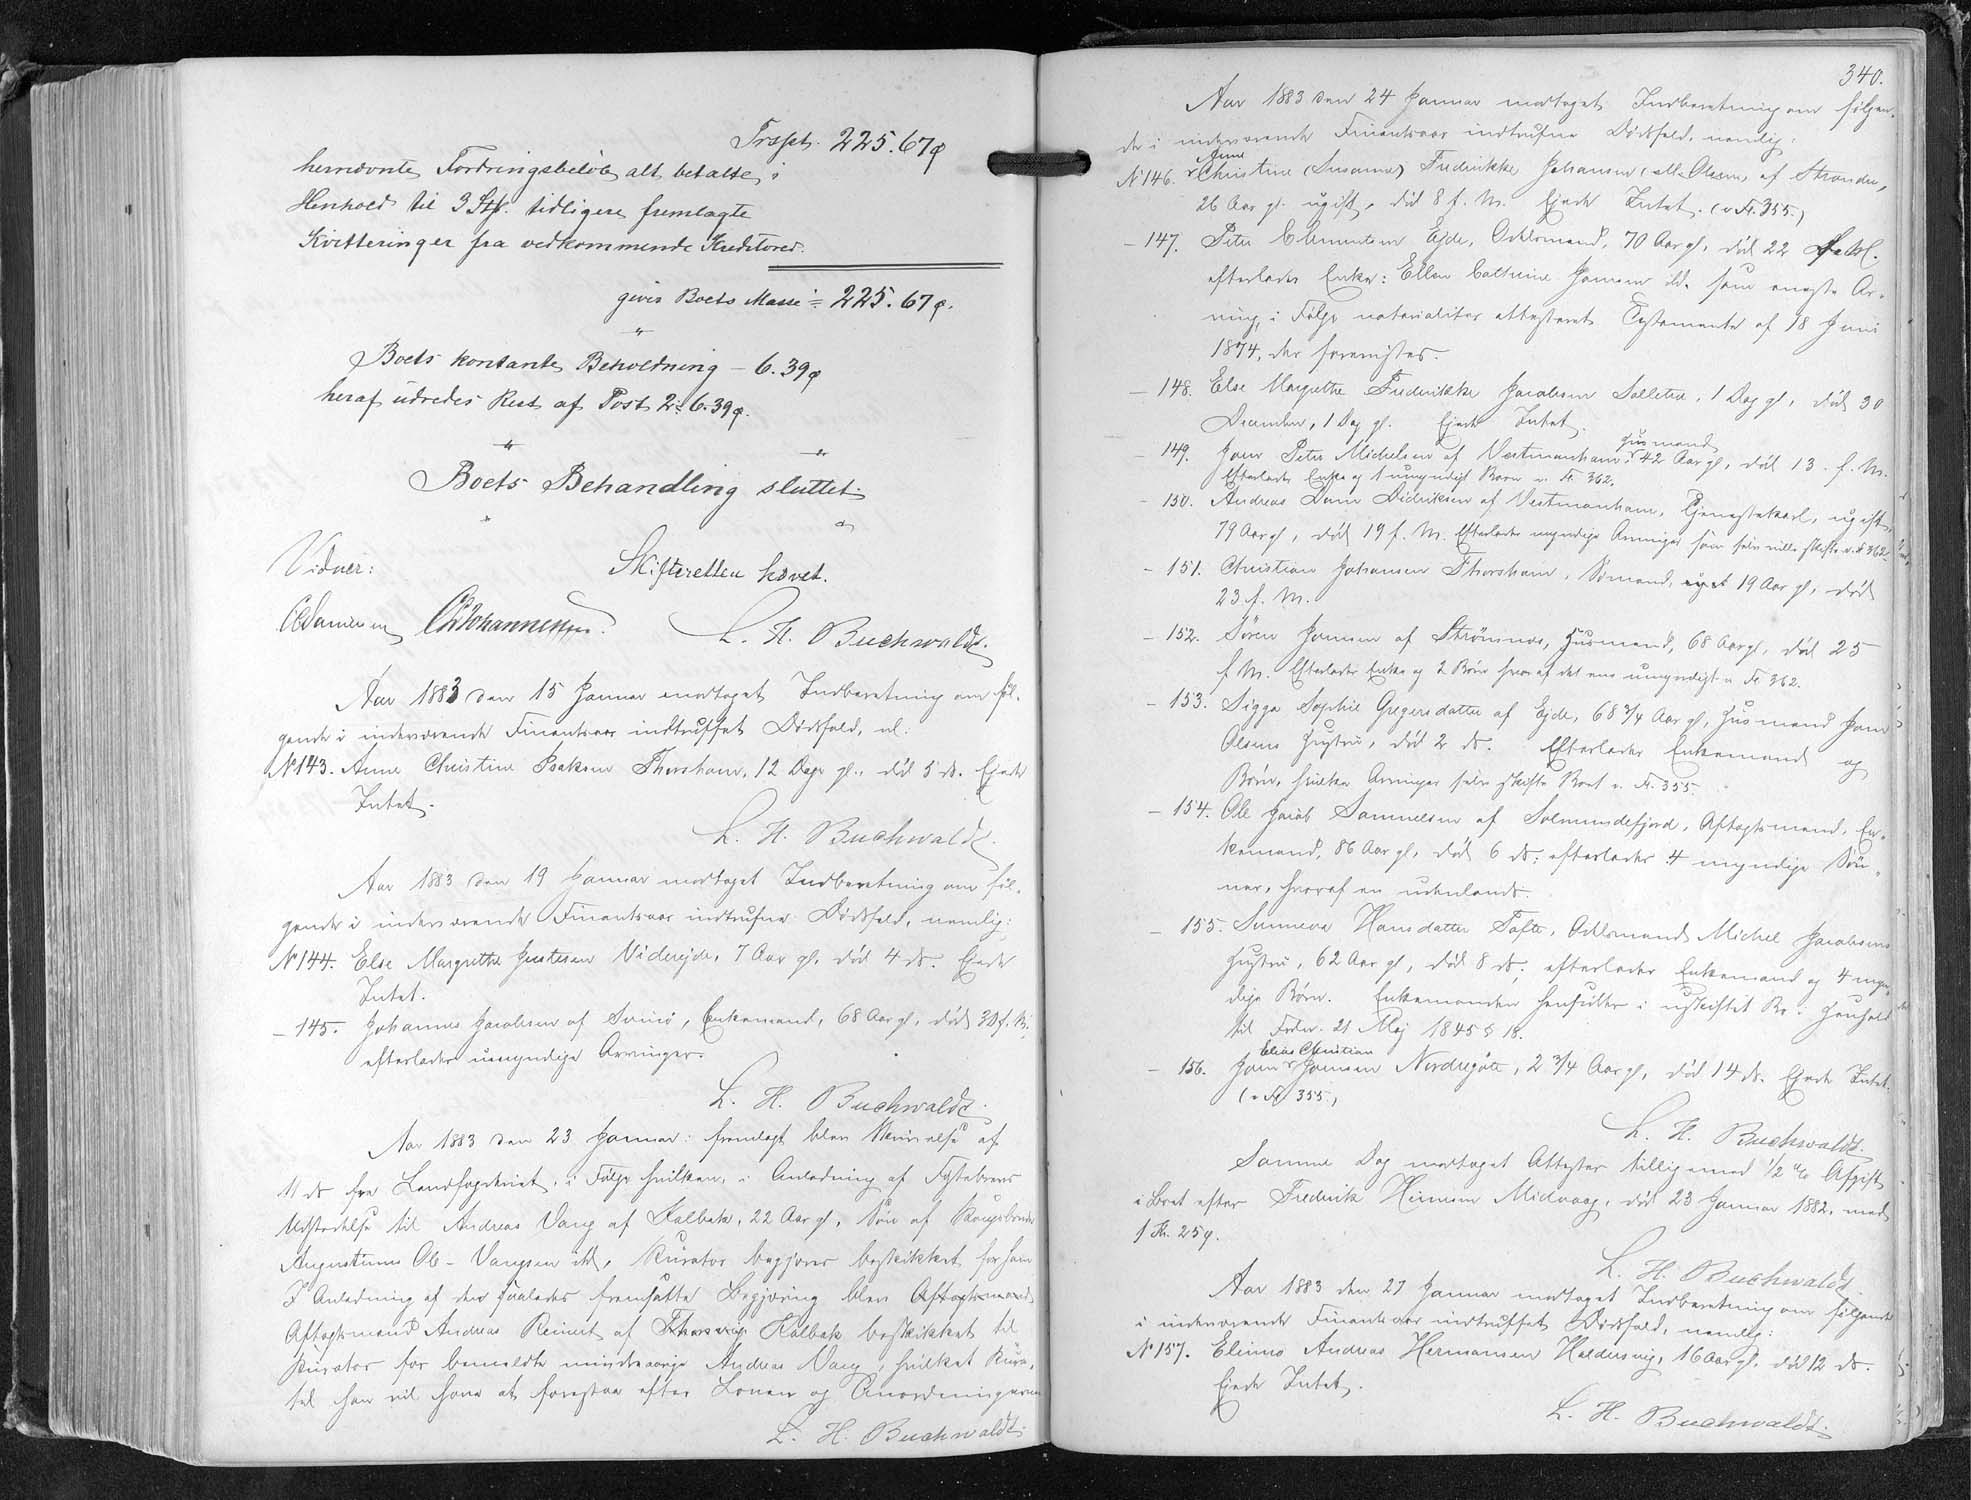 Trspt. 225.67ø
hernævnte Fordringsbeløb alt betalte i
Henhold til 3 Stk. tidligere fremlagte
Kvitteringer fra vedkommende Kreditorer.
giver Boets Masse = 225.67ø.
"
Boets kontante Beholdning – 6.39ø
heraf udredes Rest af Post 2: 6.39ø.
" "
Boets Behandling sluttet.
" "
Vidner: Skifteretten hævet.
Johannesen. L. H. Buchwaldt.
Aar 1883 den 15 Januar modtaget Indberetning om føl-
gende i indeværende Finantsaar indtruffet Dødsfald, nl:
No 143. Anne Christine Isaksen Thorshavn, 12 Dage gl., død 5 ds. Ejede
Intet.
L. H. Buchwaldt.
Aar 1883 den 19 Januar modtaget Indberetning om føl-
gende i indeværende Finantsaar indtrufne Dødsfald, nemlig:
No 144. Else Margrethe Justesen Viderejde, 7 Aar gl. død 4 ds. Ejede
Intet.
– 145. Johannes Jacobsen af Svinø, Enkemand, 68 Aar gl, død 30 f. M.
efterlader umyndige Arvinger.
L. H. Buchwaldt.
Aar 1883 den 23 Januar: fremlagt blev Skrivelse af
11 ds fra Landfogderiet, i Følge hvilken, i Anledning af Fæstebrevs
Udstedelse til Andreas Vang af Kalbak, 22 Aar gl, Søn af Kongsbonde
Augustinus Ole-Vangsen ibd, Kurator begjæres beskikket for ham
I Anledning af den saaledes fremsatte Begjæring blev Aftagtsmand
Aftagtsmand Andreas Reinert af Thorsvig Kalbak beskikket til
Kurator for bemeldte mindreaarige Andreas Vang, hvilket Kura-
tel han vil have at forestaa efter Loven og Anordningerne
L. H. Buchwaldt.
340.
Aar 1883 den 24 Januar modtaget Indberetning om følgen-
de i indeværende Finantsaar indtrufne Dødsfald, nemlig:
Anne
No 146. Christine (Susanne) Fredrikke Johansen (ell. Olsen, af Strander,
26 Aar gl. ugift, død 8 f. M. Ejede Intet. (v. Fr. 355.)
– 147. Peter Clementsen Ejde, Odelsmand, 70 Aar gl, død 22
efterlader Enke: Ellen Cathrine Joensen ibd. som eneste Ar-
ving i Følge notarialiter attesteret Testamente af 18 Juni
1874, der forevistes.
– 148. Else Margrethe Fredrikke Jacobsen Selletræ, 1 Dag gl, død 30
December, 1 Dag gl. Ejede Intet.
Husmand
– 149. Joen Peter Michelsen af Vestmanhavn, 42 Aar gl, død 13. f. M.
Efterlader Enke og 1 umyndigt Barn v. Fr. 362.
– 150. Andreas Didriksen af Vestmanhavn, Tjenestekarl, ugift,
79 Aar gl, død 19 f. M. Efterlader myndige Arvinger som selv ville skifte v. Fr 362.
– 151. Christian Johansen Thorshavn, Sømand, 19 Aar gl, død
23 f. M.
– 152. Søren Joensen af Strømnæs, Husmand, 68 Aar gl, død 25
f. M. Efterlader Enke og 2 Børn hvoraf det ene umyndigt v. Fr 362.
– 153. Sigga Sophie Gregersdatter af Ejde, 68 3/4 Aar gl, Husmand Joen
Olsens Hustru, død 2 ds. Efterlader Enkemand og
Børn, hvilke Arvinger selv skifte Boet v. Fr. 355.
– 154. Ole Jacob Samuelsen af Solmundefjord, Aftagtsmand, En-
kemand, 86 Aar gl, død 6 ds: efterlader 4 myndige Søn-
ner, hvoraf en udenlands.
– 155. Sunneva Hansdatter Tofte, Odelsmand Michel Jacobsens
Hustru, 62 Aar gl, død 8 ds: efterlader Enkemand og 4 myn-
dige Børn. Enkemanden hensidder i uskiftet Bo i Henhold
til Frdn. 21 Maj 1845 § 18.
Elias Christian
– 156. Joen Joensen Nordregøte, 2 3/4 Aar gl, død 14 ds. Ejede Intet.
(v. Fr 355.)
L. H. Buchwaldt.
Samme Dag modtaget Attester tilligemed 1/2 % Afgift
i Boet efter Fredrik Heinesen Midvaag, død 23 Januar 1882. med
1 Kr. 25ø.
L. H. Buchwaldt
Aar 1883 den 27 Januar modtaget Indberetning om følgende
i indeværende Finantsaar indtruffet Dødsfald, nemlig:
No 157. Elinus Andreas Hermansen Haldersvig, 16 Aar gl. død 12 ds.
Ejede Intet.
L. H. Buchwaldt.